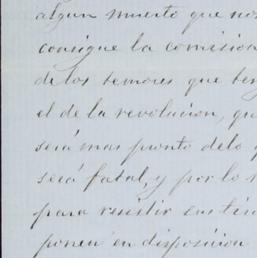 algun muerto que nos
consigue la comision
de los temores que ten
el de la revolucion, qu
será mas pronto delo q
será fatal, y por lo
para resistir sus
ponen en disposicion